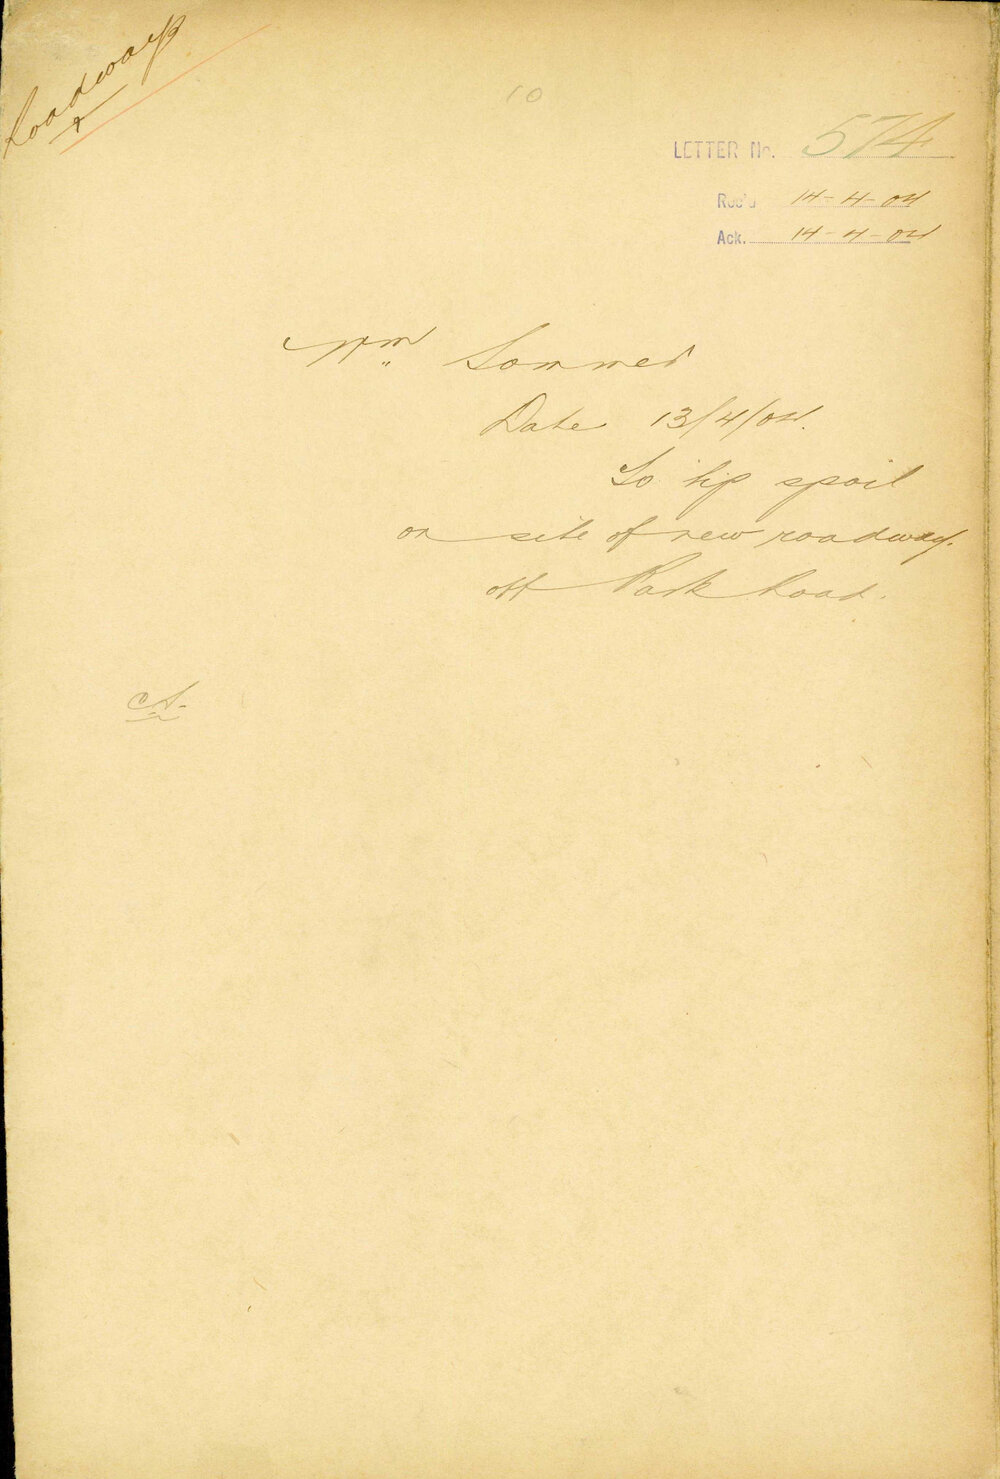 Roadways
10
LETTER No. 574
Rec'd 14-4-04
Ack. 14-4-04
Wm Sommer
Date 13/4/04.
To tip spoil
on site of new roadway.
off Park Road.